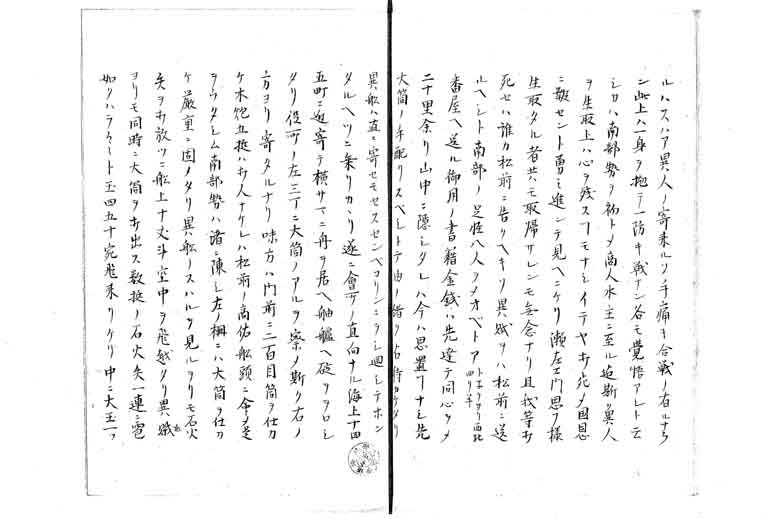 ルハスハア異人ノ寄来ルソ手痛キ合戦ノ有ルナラ
ン此上ハ一身ヲ抛テ一防キ戦ナン各モ覚悟アレト云
シカハ南部勢ヲ初トメ商人水主ニ至ル迄斯ク異人
ヲ生取上ハ心ヲ残スヿモナシイテヤ打死メ国恩
ニ報セント勇ミ進ンテ見ヘニケリ瀬左エ門思フ様
生取タル者共モ取帰サレンモ無念ナリ且我等打
死セハ誰カ松前ニ告クヘキソ異賊ヲハ松前ニ送
ルヘシト南部ノ足軽八人ソメオベトア
番屋ヘ送ル御用ノ書籍金銭ハ先達テ同心ヲメ
二十里余リ山中ニ隠シタレハ今ハ思置ヿナシ先
大筒ノ手配リスベシトテ由ノ諸ク
異船ハ直ニ寄セモセスセンベコリンニヲシ廻シテホン
タルヘツニ乗リカヽリ遂ニ會所ノ直向ナル海上十四
五町ニ近寄テ横サマニ舟ヲ居ヘ舳艫ヘ碇ヲヲロシ
タリ役所ノ左三丁ニ大筒ノアルヲ察メ斯ク右ノ
方ヨリ寄タルナリ味方ハ門前ニ二百目筒ヲ仕カ
ケ木炮五挺ハ打人ナケレハ松前ノ高佑船頭ニ命メ是
ヲウタシム南部勢ハ諸ニ陳シ左ノ柵ニハ大筒ヲ仕カ
ケ厳重ニ固メタリ異船ノスハルヲ見ルヨリモ石火
矢ヲ打放ツニ船上十丈斗空中ヲ飛越タリ異賊
ヨリモ同時ニ大筒ヲ打出ス数挺ノ石火矢一連ニ雹
如クハラクート玉四五十宛飛来リケリ中ニ大玉一ツ